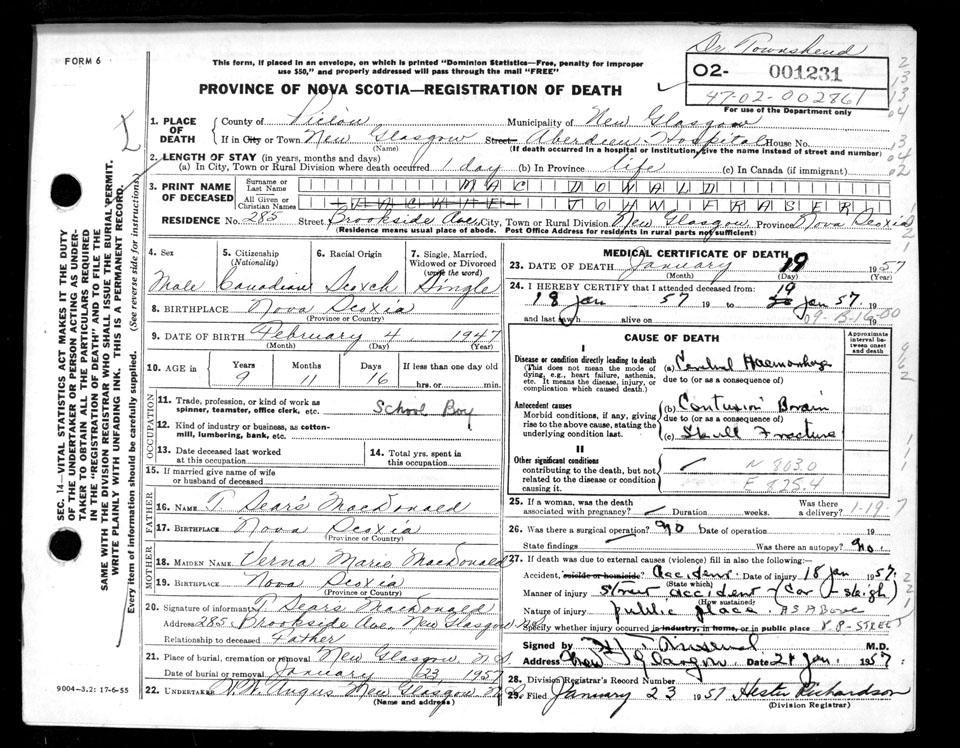 FORM 6
This form, if placed in an envelope, on which is printed "Dominion Statistics—Free, penalty for improper
use $50," and properly addressed will pass through the mail "FREE"
Dr. Townshend
O2- 001231
47-02-002861
For use of the Department only
PROVINCE OF NOVA SCOTIA—REGISTRATION OF DEATH
1. PLACE OF DEATH
County of Pictou Municipality of New Glasgow
If in City or Town New Glasgow Street Aberdeen Hospital House No.
(Name) (If death occurred in a hospital or institution, give the name instead of street and number)
2. LENGTH OF STAY (in years, months and days)
(a) In City, Town or Rural Division where death occurred 1 day (b) In Province life (c) In Canada (if immigrant)
3. PRINT NAME OF DECEASED
Surname or Last Name MAC DONALD
All Given or Christian Names JOHN FRASER
RESIDENCE No. 285 Street Brookside Ave, City, Town or Rural Division New Glasgow, Province Nova Scotia
(Residence means usual place of abode. Post Office Address for residents in rural parts not sufficient)
4. Sex Male
5. Citizenship (Nationality) Canadian
6. Racial Origin Scotch
7. Single, Married, Widowed or Divorced (write the word) Single
8. BIRTHPLACE Nova Scotia
(Province or Country)
9. DATE OF BIRTH February 4, 1947
(Month) (Day) (Year)
10. AGE Years 9 Months 11 Days 16 If less than one day old hrs. or min.
OCCUPATION
11. Trade, profession, or kind of work as spinner, teamster, office clerk, etc. School Boy
12. Kind of industry or business, as cotton-mill, lumbering, bank, etc.
13. Date deceased last worked at this occupation
14. Total yrs. spent in this occupation
15. If married give name of wife or husband of deceased
FATHER
16. NAME T. Sears MacDonald
17. BIRTHPLACE Nova Scotia
(Province or Country)
MOTHER
18. MAIDEN NAME Verna Marie MacDonald
19. BIRTHPLACE Nova Scotia
(Province or Country)
20. Signature of informant T. Sears MacDonald
Address 285 Brookside Ave, New Glasgow N.S.
Relationship to deceased Father
21. Place of burial, cremation or removal New Glasgow N.S.
Date of burial or removal January 23 1957
22. UNDERTAKER Angus New Glasgow N.S.
(Name and address)
MEDICAL CERTIFICATE OF DEATH
23. DATE OF DEATH January 19 1957
(Month) (Day) (Year)
24. I HEREBY CERTIFY that I attended deceased from:
18 Jan 57 19 to 19 Jan 57. 19
and last saw h alive on 19
CAUSE OF DEATH
Approximate interval between onset and death
I
Disease or condition directly leading to death
(This does not mean the mode of dying, e.g., heart failure, asthenia, etc. It means the disease, injury, or complication which caused death.)
(a) Cerebral Haemorrhage
due to (or as a consequence of)
Antecedent causes
Morbid conditions, if any, giving rise to the above cause, stating the underlying condition last.
(b) Contusion Brain
due to (or as a consequence of)
(c) Skull Fracture
II
Other significant conditions
contributing to the death, but not related to the disease or condition causing it.
N 803.0
E 825.4
25. If a woman, was the death associated with pregnancy? Duration weeks. Was there a delivery?
1-19-7
26. Was there a surgical operation? No Date of operation 19
State findings Was there an autopsy? No.
27. If death was due to external causes (violence) fill in also the following:
Accident, suicide or homicide? Accident. Date of injury 18 Jan 1957.
(State which)
Manner of injury Street accident (Car - sleigh)
(How sustained)
Nature of injury public place As Above
Specify whether injury occurred in industry, in home, or in public place P.P-STREET
Signed by M.D.
Address New Glasgow Date 21 Jan 1957
28. Division Registrar's Record Number
29. Filed January 23 1957 Hester Richardson
(Division Registrar)
9004-3.2: 17-6-55
SEC. 14—VITAL STATISTICS ACT MAKES IT THE DUTY
OF THE UNDERTAKER OR PERSON ACTING AS UNDER-
TAKER TO OBTAIN ALL THE PARTICULARS REQUIRED
IN THE "REGISTRATION OF DEATH" AND TO FILE THE
SAME WITH THE DIVISION REGISTRAR WHO SHALL ISSUE THE BURIAL PERMIT.
WRITE PLAINLY WITH UNFADING INK. THIS IS A PERMANENT RECORD.
Every item of information should be carefully supplied. (See reverse side for instructions)